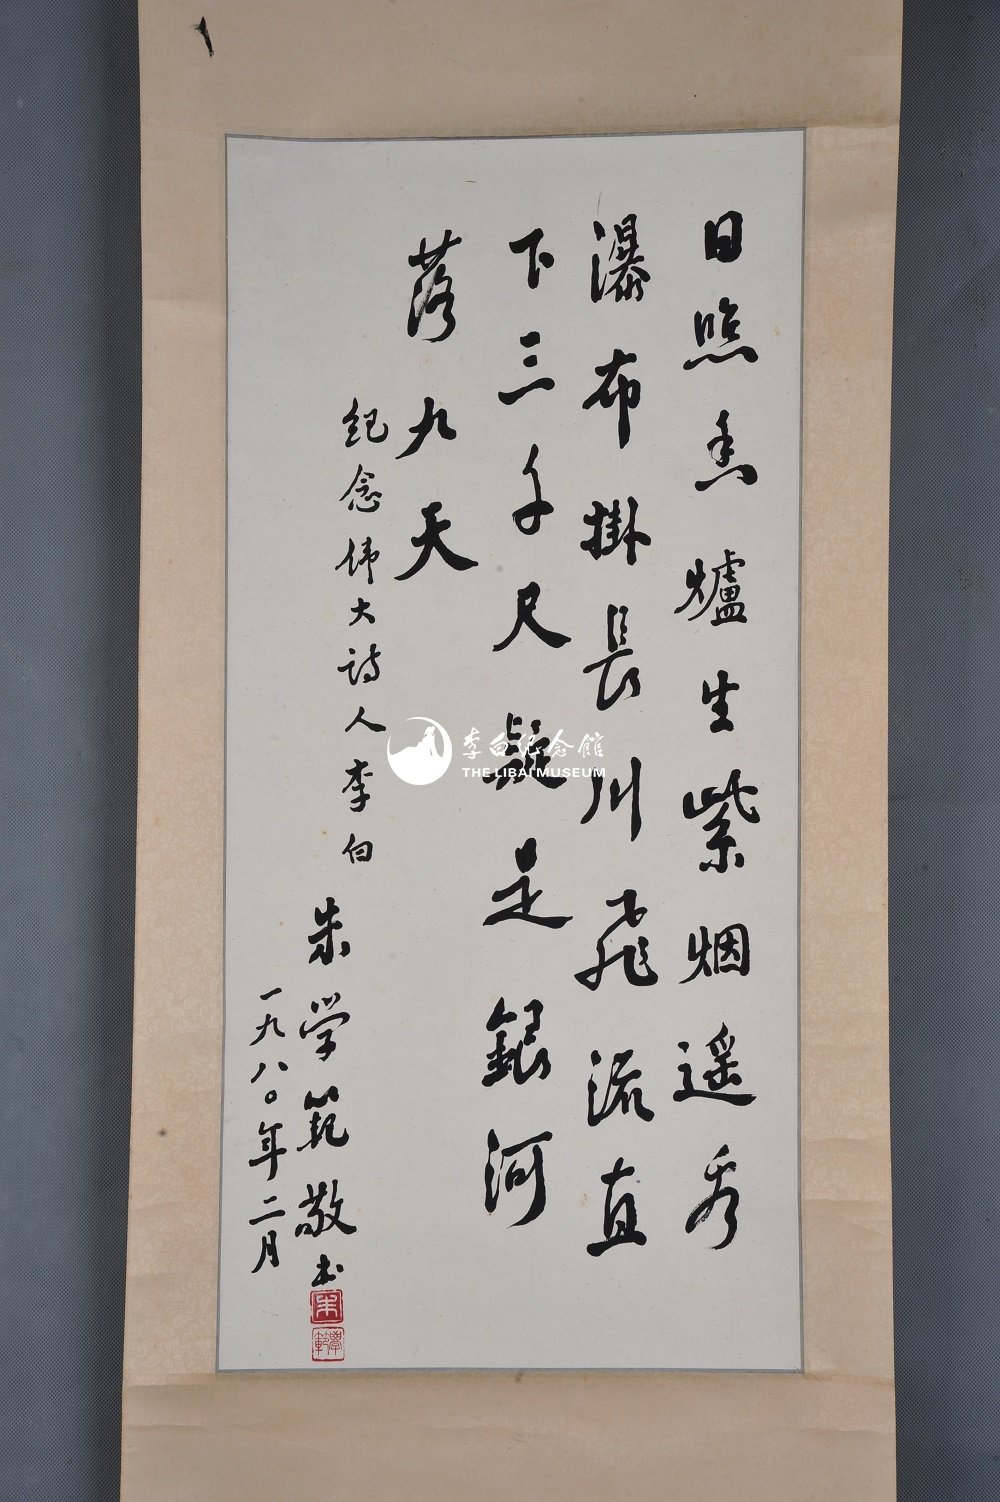 日照香爐生紫烟遥看
瀑布掛長川飛流直
下三千尺疑是銀河
落九天
纪念伟大诗人李白
朱学範敬书
一九八〇年二月
朱
學範
李白纪念館
THE LIBAI MUSEUM